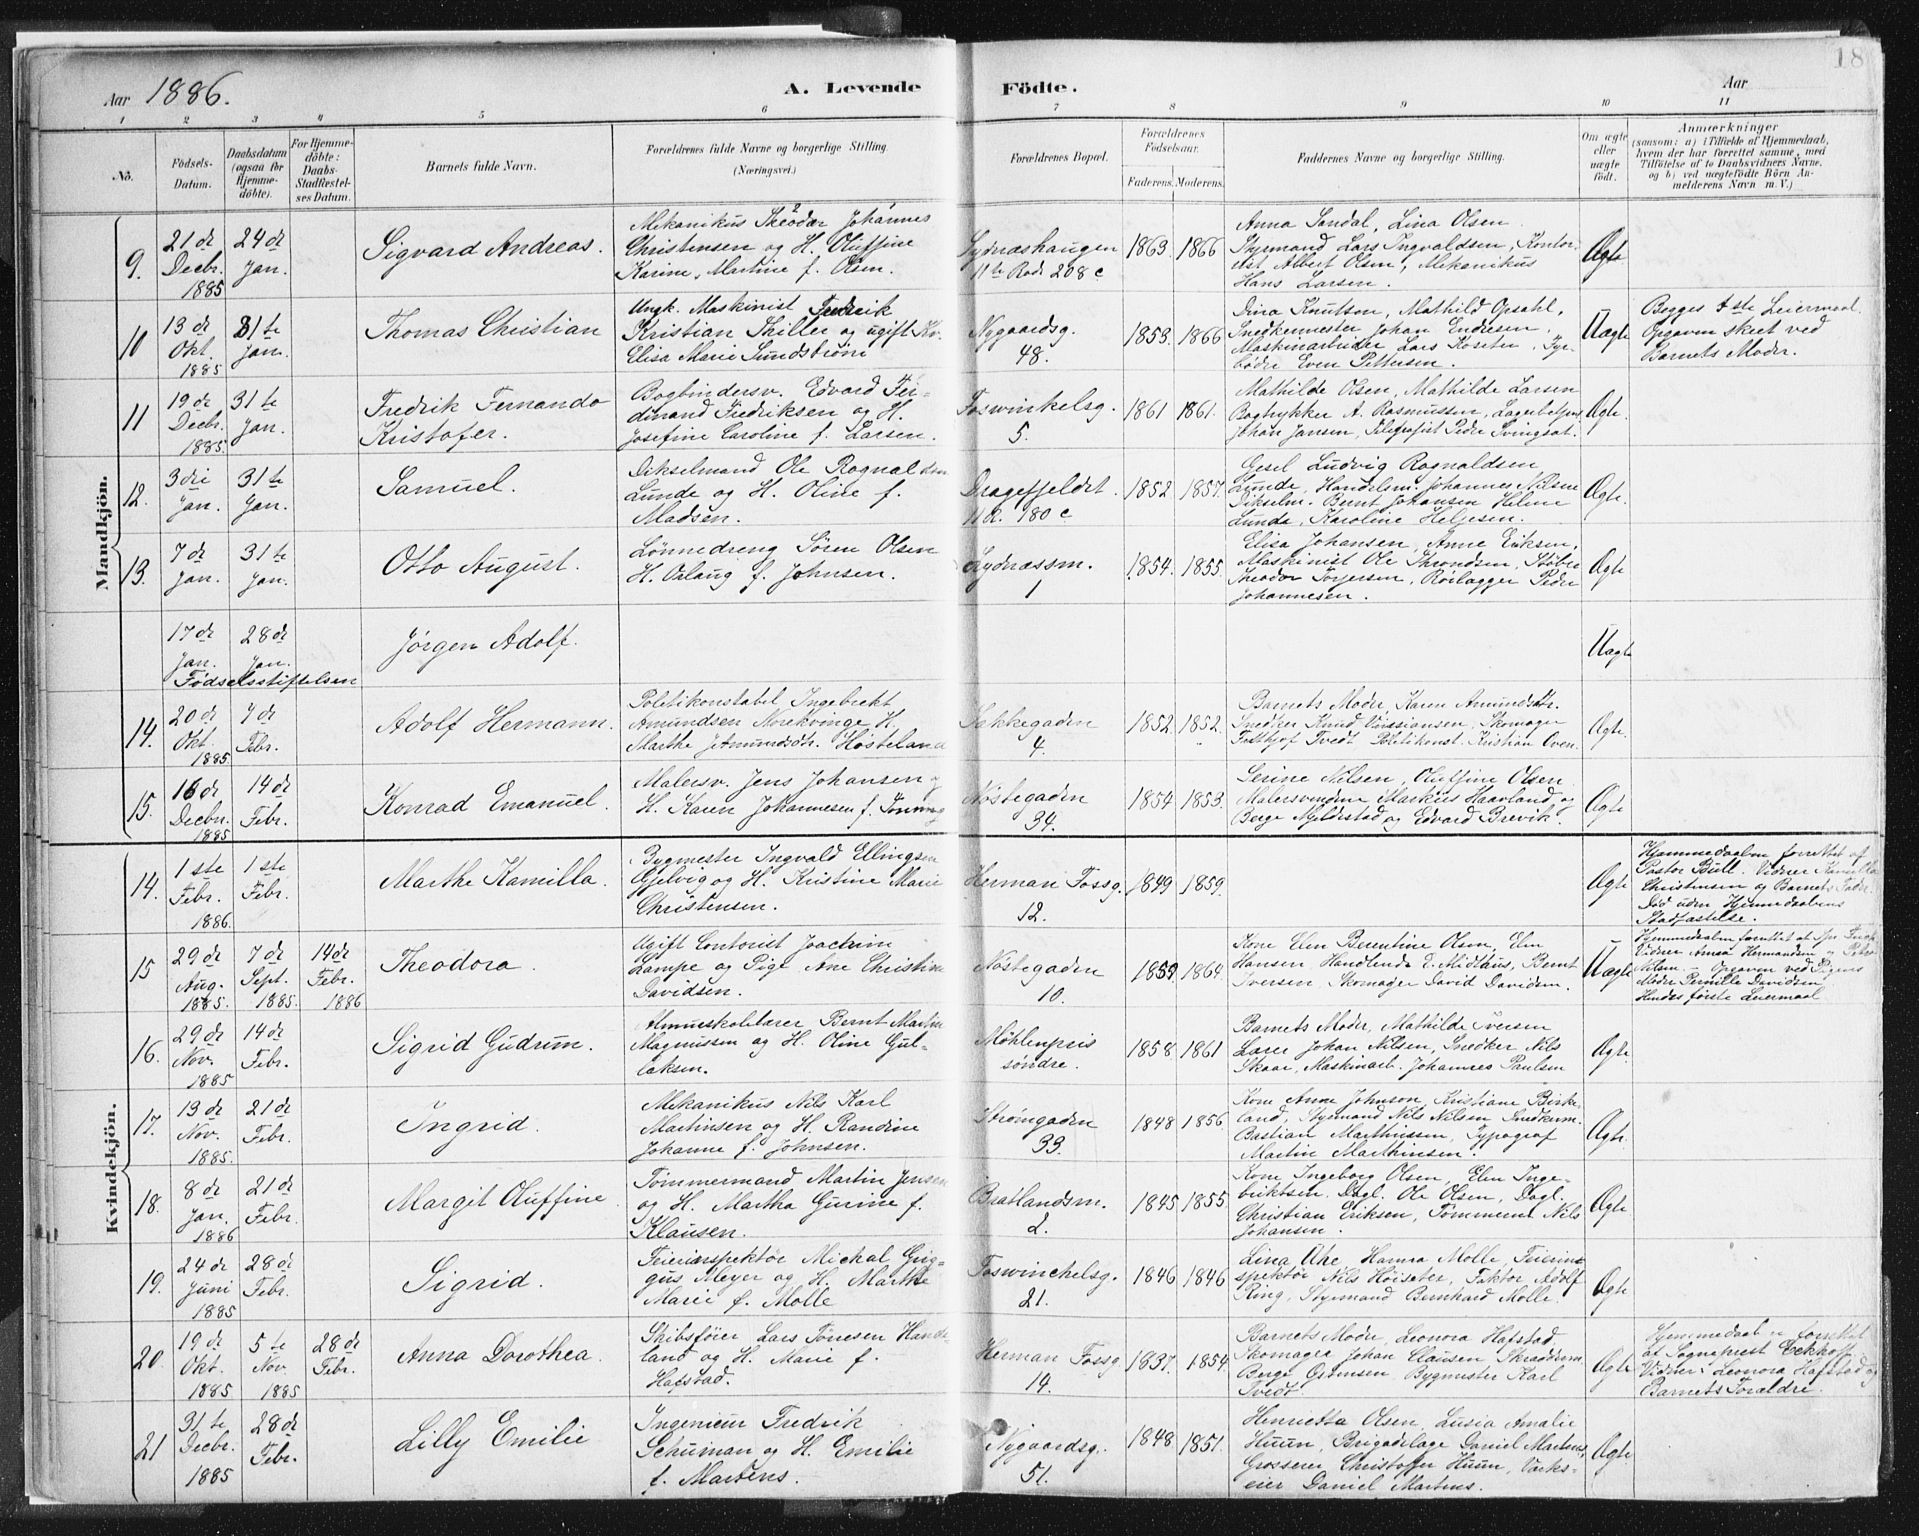 18
Aar 1886.
A. Levende Födte.
Aar
1 2 3 4 5 6 7 8 9 10 11
No.
Födsels-Datum.
Daabsdatum (ogsaa for Hjemmedöbte).
For Hjemmedöbte: Daabs-Stadfæstelses Datum.
Barnets fulde Navn.
Forældrenes fulde Navne og borgerlige Stilling. (Næringsvei.)
Forældrenes Bopæl.
Forældrenes Födselsaar.
Faderens. Moderens.
Faddernes Navne og borgerlige Stilling.
Om ægte eller uægte födt.
Anmærkninger
(saasom: a) i Tilfælde af Hjemmedaab, hvem der har forrettet samme, med Tilföielse af to Daabsvidners Navne, og b) ved uægtefödte Börn Anmelderens Navn m. V.)
Mandkjön.
9. 21 de Decbr. 1885
24 de Jan.
Sigvard Andreas.
Mekanikus Theodor Johannes
Christensen og H. Oluffine
Karine Martine f. Olsen.
Sydnæshaugen
11te Rode 208 c
1863 1866
Anna Sandal, Lina Olsen
Styrmand Lars Ingvaldsen, Kontor-
ist Albert Olsen, Mekanikus
Hans Larsen.
Ægte
10 13 de Okt. 1885
31 te Jan.
Thomas Christian
Ungk. Maskinist Fredrik
Kristian Thiller og ugift Kv.
Elisa Marie Sundstrøm
Nygaardsg.
48.
1853. 1866
Dina Knutson, Mathild Opdahl,
Snedkermester Johan Endresen,
Maskinarbeider Lars Koseter, Fyr-
bøder Even Pettersen
Uægte
Begges 1ste Leiermaal
Opgaven skeet ved
Barnets Moder.
11 19 de Decbr. 1885.
31 te Jan.
Fredrik Fernando
Kristofer.
Bogbindersv. Edvard Fer-
dinand Fredriksen og H.
Josefine Caroline f. Larsen.
Foswinkelsg.
5.
1861 1861.
Mathilde Olsen, Mathilde Larsen
Bogtrykker A. Rasmussen, Lagerbetjent
Johan Jansen, Telegrafist Peder
Ægte.
12. 3 die Jan.
31 te Jan.
Samuel.
Dikselmand Ole Rognaldsen
Lunde og H. Oline f.
Madsen.
Dragefjeldet.
11 R. 180 c
1852 1857.
Gesel Ludvig Rognaldsen
Lunde, Handelsm. Johannes Nilsen
Dikselm. Bernt Johansen Helene
Lunde, Karoline Heljesen.
Ægte.
13. 7 de Jan.
31 te Jan.
Otto August.
Lønnedreng Søren Olsen
H. Oslaug f. Johnsen.
Sydnæssm.
1
1854. 1855.
Elisa Johansen, Anne Eriksen,
Maskinist Ole Throndsen, Støber
Theodor Torjersen, Röilægger Peder
Johannesen.
Ægte
17 de Jan.
28 de Jan.
Fødselsstiftelsen
Jørgen Adolf.
Uægte
14. 20 de Okt. 1885
7 de Febr.
Adolf Hermann.
Politikonstabel Ingebrekt
Amundsen Norekvinge H.
Marthe f. Amundsdtr. Høsteland
Sækkegaden
4.
1852. 1852.
Barnets Moder, Karen Amundsdtr.
Snedker Knud Christiansen, Skomager
Fridthjof Tvedt Politikonst. Kristian Oven.
Ægte.
15. 16 de Decbr. 1885
14 de Febr.
Konrad Emanuel.
Malersv. Jens Johansen og
H. Karen Johannesen f.
Nøstegaden
34.
1854 1853.
Serine Nilsen, Oluffine Olsen
Malersvendene Markus Haavland og
Berge Mjeldestad og Edvard Brevik.
Ægte
Kvindekjön.
14. 1 ste Febr. 1886.
1 ste Febr.
Marthe Kamilla.
Bygmester Ingvald Ellingsen
Gjelvig og H. Kristine Marie
Christensen.
Herman Fossg.
12.
1849 1859.
Ægte
Hjemmedaaben forrettet af
Pastor Bull. Vidner Kamilla
Christensen og Barnets Fader.
Død uden Hjemmedaabens
Stadfæstelse.
15 29 de Aug. 1885.
7 de Sept. 1885.
14 de Febr. 1886
Theodora.
Ugift Contorist Joachim
Lampe og Pige Ane Christine
Davidsen.
Nøstegaden
10.
1859 1864.
Kone Elen Berentine Olsen, Elen
Hansen Handlende E. Midthus, Bernt
Iversen, Skomager David Davidsen.
Uægte
Hjemmedaaben forrettet af
Vidner Anna Hermandsen og Petra
Nilsen. – Opgaven ved Pigens
Moder Pernille Davidsen
Hendes første Leiermaal
16. 29 de Nov. 1885
14 de Febr.
Sigrid Gudrun.
Almueskolelærer Bernt Martin
Magnussen og H. Oline Gul-
laksen.
Møhlenpris
søndre.
1858 1861
Barnets Moder, Mathilde Iversen
Lærer Johan Nilsen, Snedker Nils
Skaar, Maskinarb. Johannes Paulsen
Ægte.
17. 13 de Nov. 1885.
21 de Febr.
Ingrid.
Mekanikus Nils Karl
Martinsen og H. Randine
Johanne f. Johnsen.
Strømgaden
33.
1848 1856.
Kone Anne Johnson, Kristiane Birke-
land, Styrmand Nils Nilsen Snedkerm.
Bastian Marthinssen, Typograf
Martin Marthinsen.
Ægte.
18. 8 de Jan. 1886
21 de Febr.
Margit Oluffine.
Tømmermand Martin Jensen
og H. Martha Gurine f.
Klausen.
Bratlandsm.
2.
1845 1855.
Kone Ingeborg Olsen, Elen Inge-
briktsen. Dagl. Ole Olsen, Dagl.
Christian Eriksen, Tømmerm. Nils
Johansen.
Ægte
19. 24 de Juni 1885
28 de Febr.
Sigrid.
Feierinspektør Michal Grig-
gus Meyer og H. Marthe
Marie f. Molle
Foswinchelsg.
21.
1846 1846
Lina Uhe Hanna Molle, Feierin-
spektør Nils Høisæter, Faktor Adolf
Ring, Styrmand Bernhard Molle.
Ægte
20. 19 de Okt. 1885
5 te Nov. 1885
28 de Febr.
Anna Dorothea.
Skibsfører Lars Tønesen Hande-
land og H. Marie f.
Hafstad.
Herman Fossg.
14.
1837. 1854.
Barnets Moder, Leonora Hafstad.
Skomager Johan Clausen Skræderm.
Berge Gramsen, Bygmester Karl
Tvedt
Ægte
Hjemmedaab er forrettet
af Sogneprest Eckhoff
Vidner Leonora Hafstad og
Barnets Forældre.
21 31 te Decbr. 1885
28 de Febr.
Lilly Emilie
Ingeniør Fredrik
Schuman og H. Emilie
f. Martens.
Nygaardsg.
51.
1848. 1851.
Henrietta Olsen, Lusia Amalie
Huun, Brigadelæge Daniel Martens,
Grosserer Christoffer Huun, Værks-
eier Daniel Martens.
Ægte